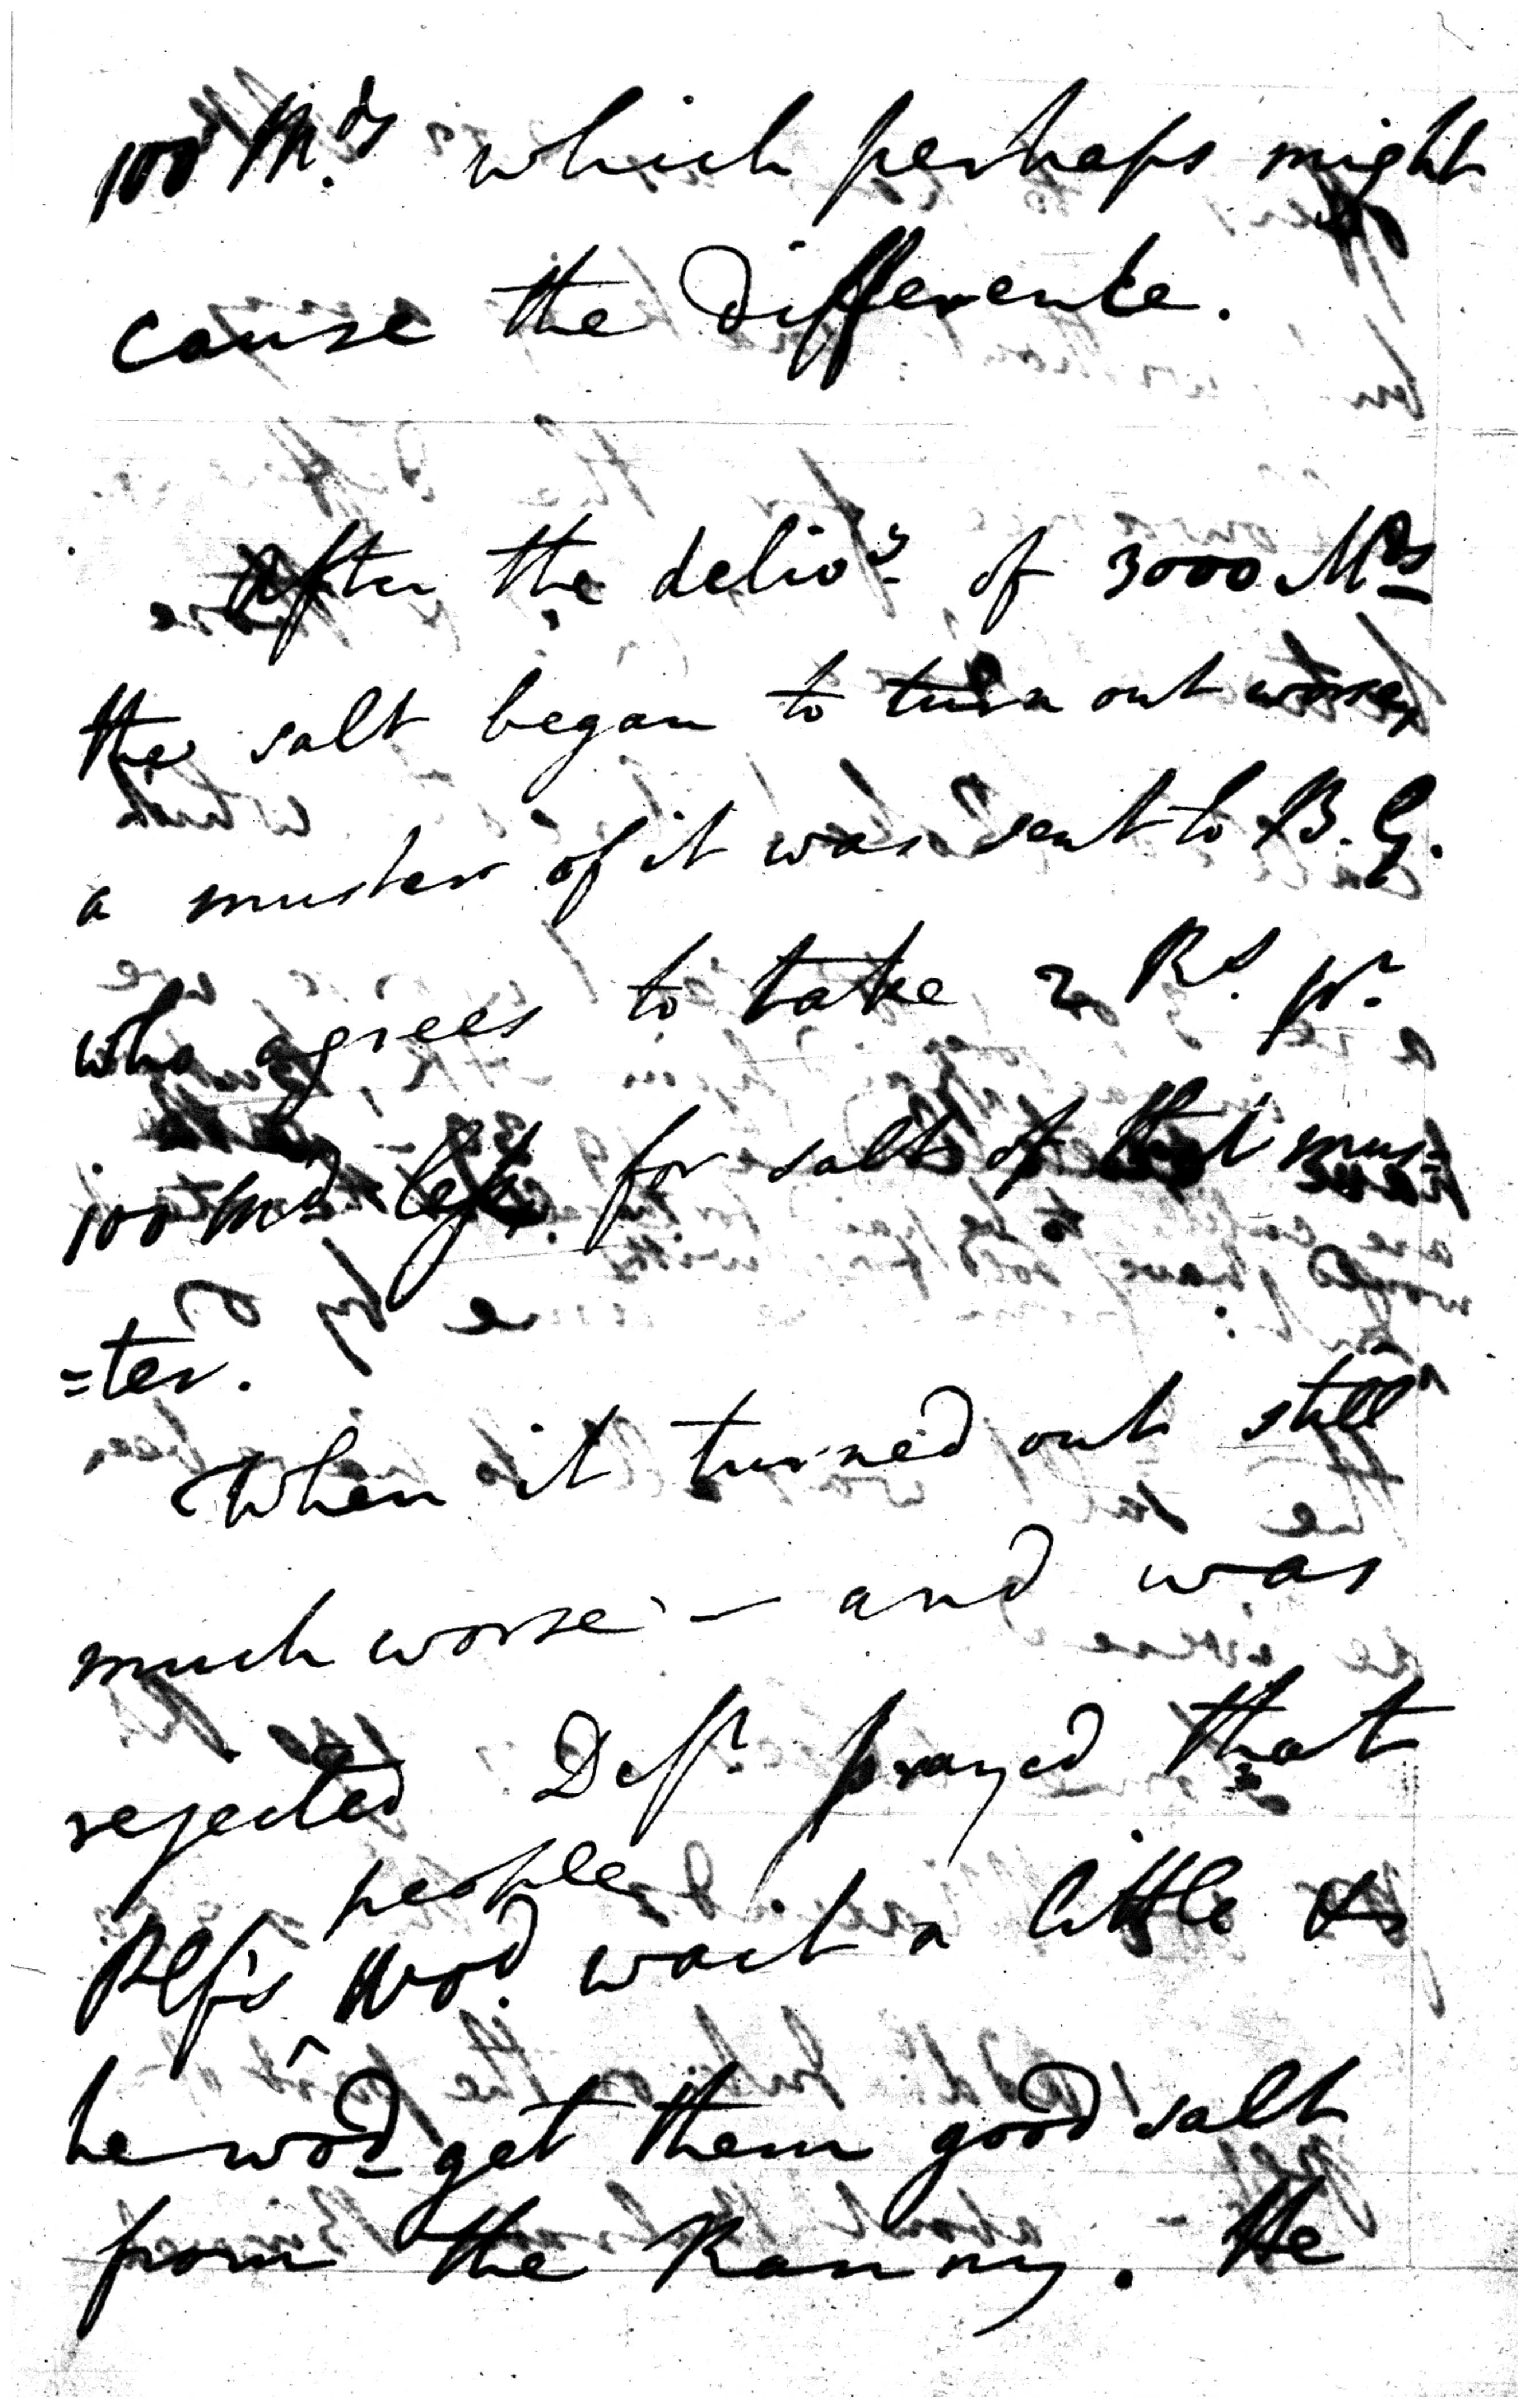 100 M.ds which perhaps might
cause the Difference.
After the delivy of 3000 Mds
the salt began to turn out worse,
a muster of it was sent to B. G.
who agrees to take 2 Rs. pr.
100 Mds less for salt of that mus-
=ter.
When it turned out still
much worse — and was
rejected Deft prayed that
people
Plf's wod wait a little &
he wod get them good salt
from the Ranny. He